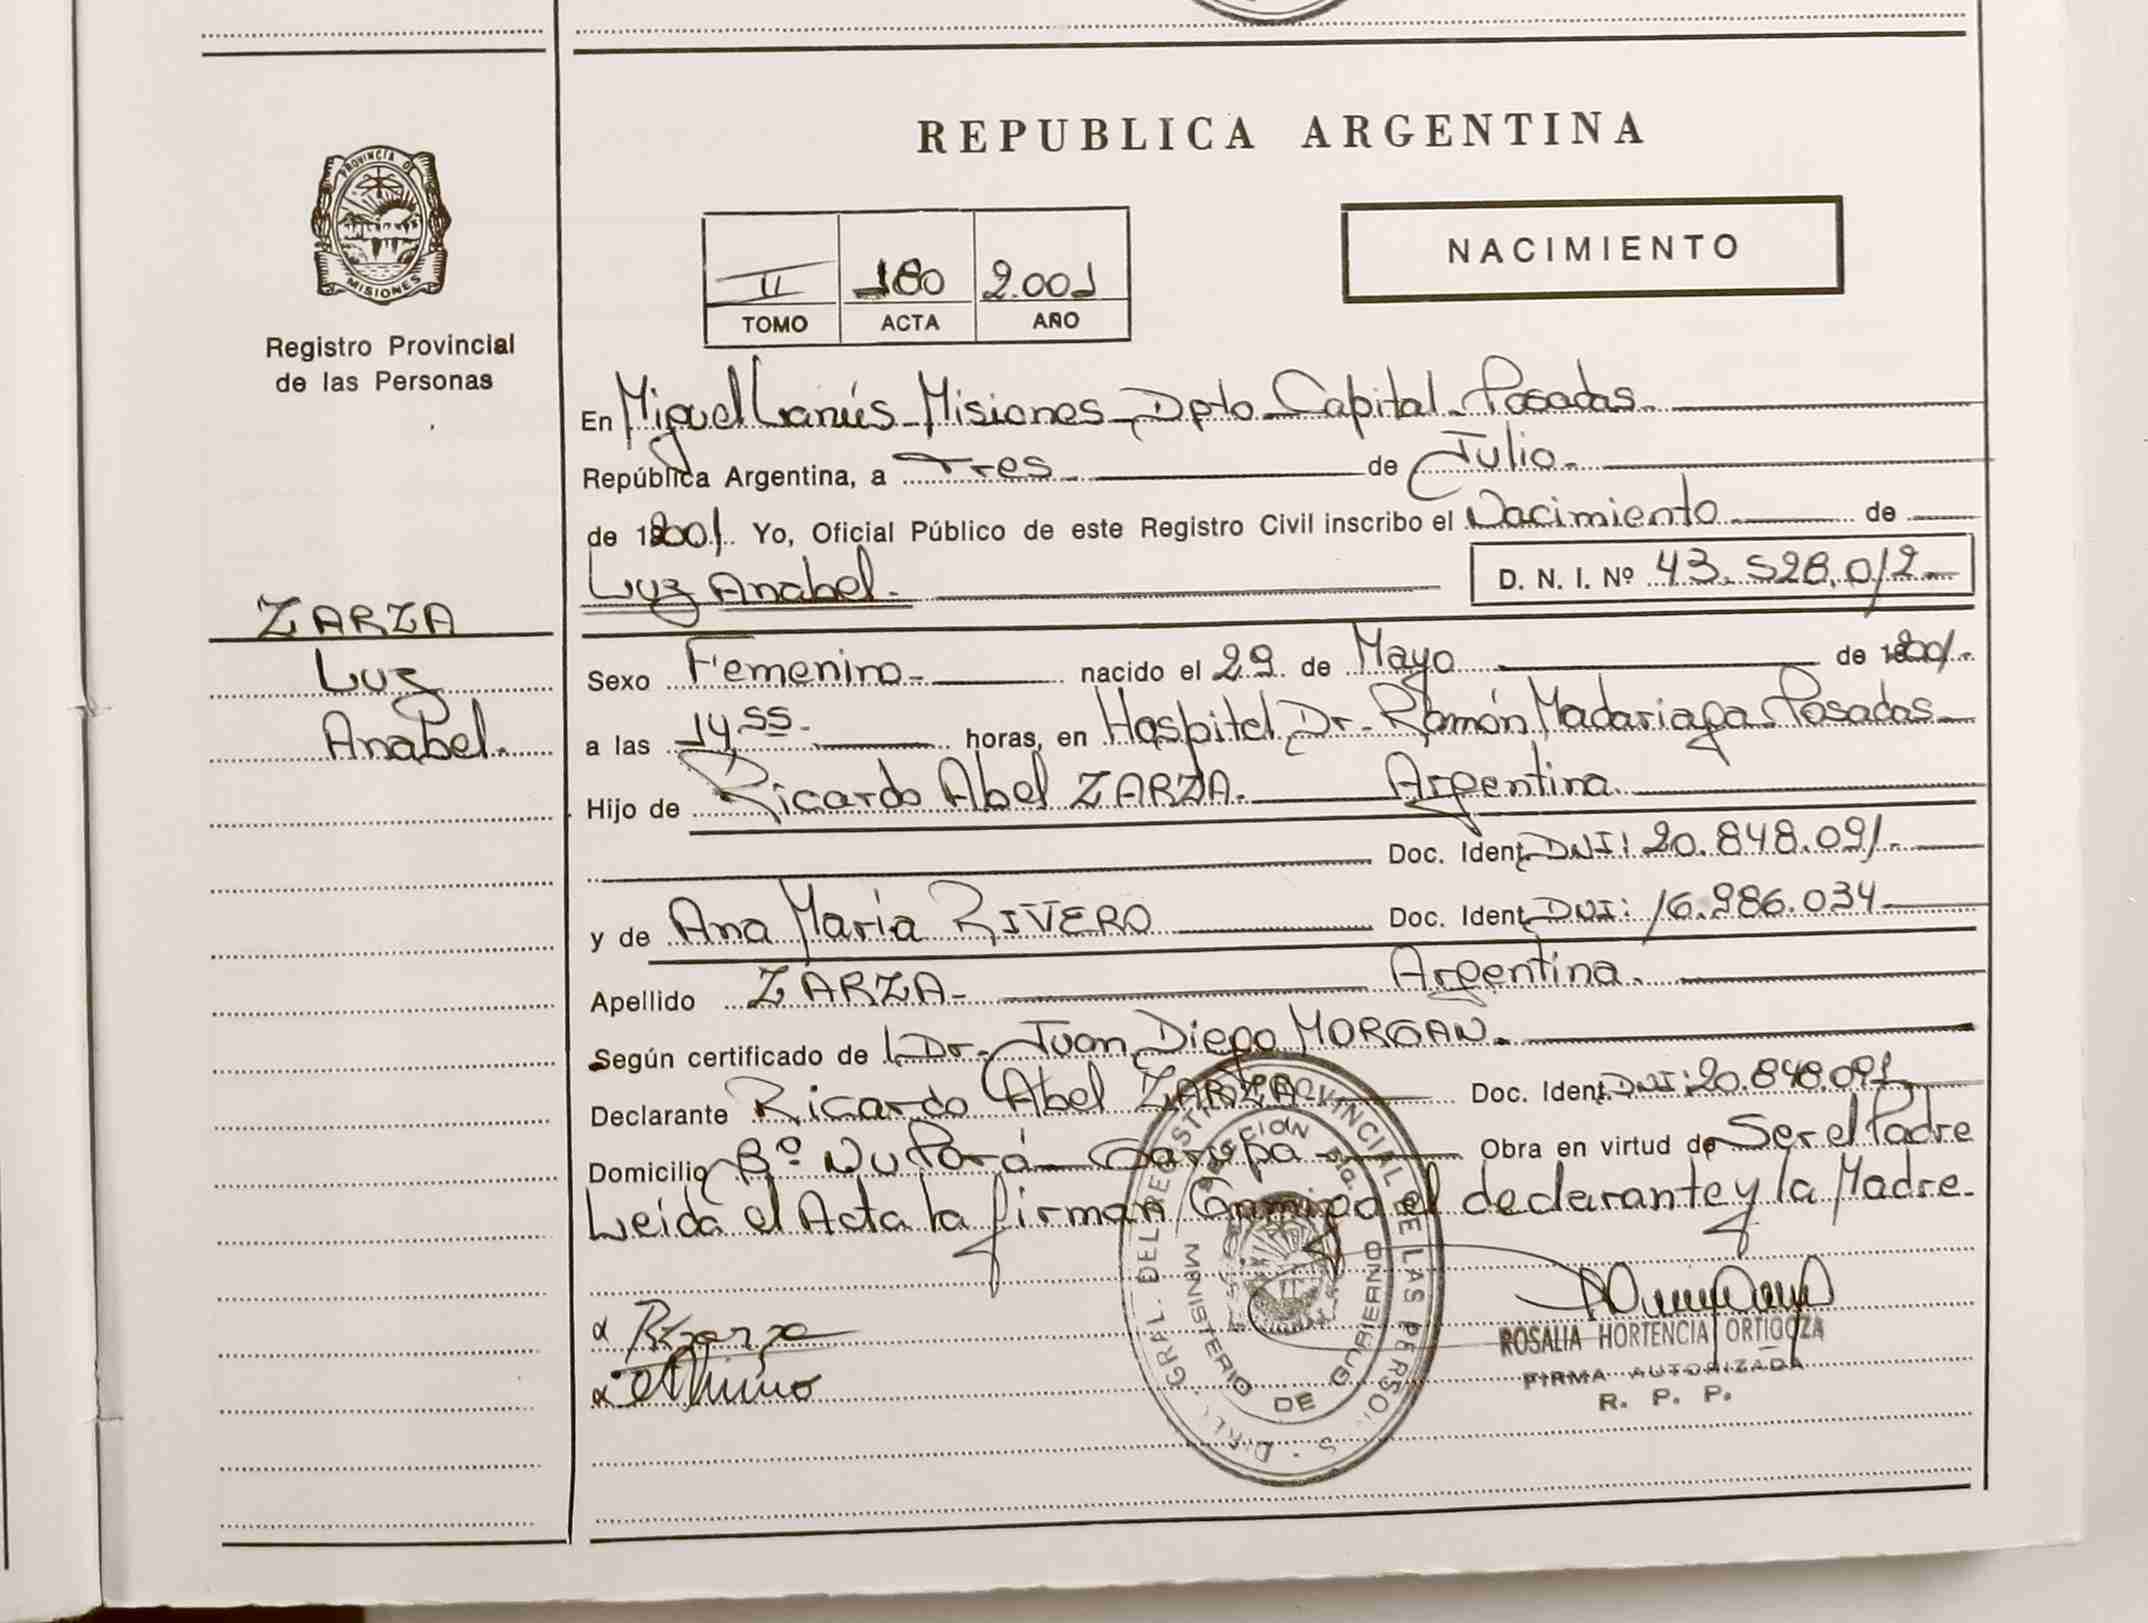 PROVINCIA DE
MISIONES
Registro Provincial
de las Personas
ZARZA
Luz
Anabel.
REPUBLICA ARGENTINA
NACIMIENTO
II 180 2.001
TOMO ACTA AÑO
En Miguel Lanús - Misiones - Dpto Capital - Posadas.
República Argentina, a Tres de Julio.
de 2001. Yo, Oficial Público de este Registro Civil inscribo el Nacimiento de
Luz Anabel. D. N. I. Nº 43.528.012
Sexo Femenino nacido el 29 de Mayo de 2001.
a las 14,55 horas, en Hospital Dr. Ramón Madariaga Posadas
Hijo de Ricardo Abel ZARZA. Argentina.
Doc. Ident. DNI: 20.848.091.
y de Ana María RIVERO Doc. Ident. DNI: 16.986.034
Apellido ZARZA Argentina.
Según certificado de Dr. Juan Diego MORGAN.
Declarante Ricardo Abel ZARZA Doc. Ident. DNI: 20.848.091
Domicilio Bº Ñu Porá - Garupa Obra en virtud de Ser el Padre
Leida el Acta la firman Conmigo el declarante y la Madre.
ROSALIA HORTENCIA ORTIGOZA
FIRMA AUTORIZADA
R. P. P.
GRAL. DEL REGISTRO PROVINCIAL DE LAS PERSONAS
MINISTERIO DE GOBIERNO